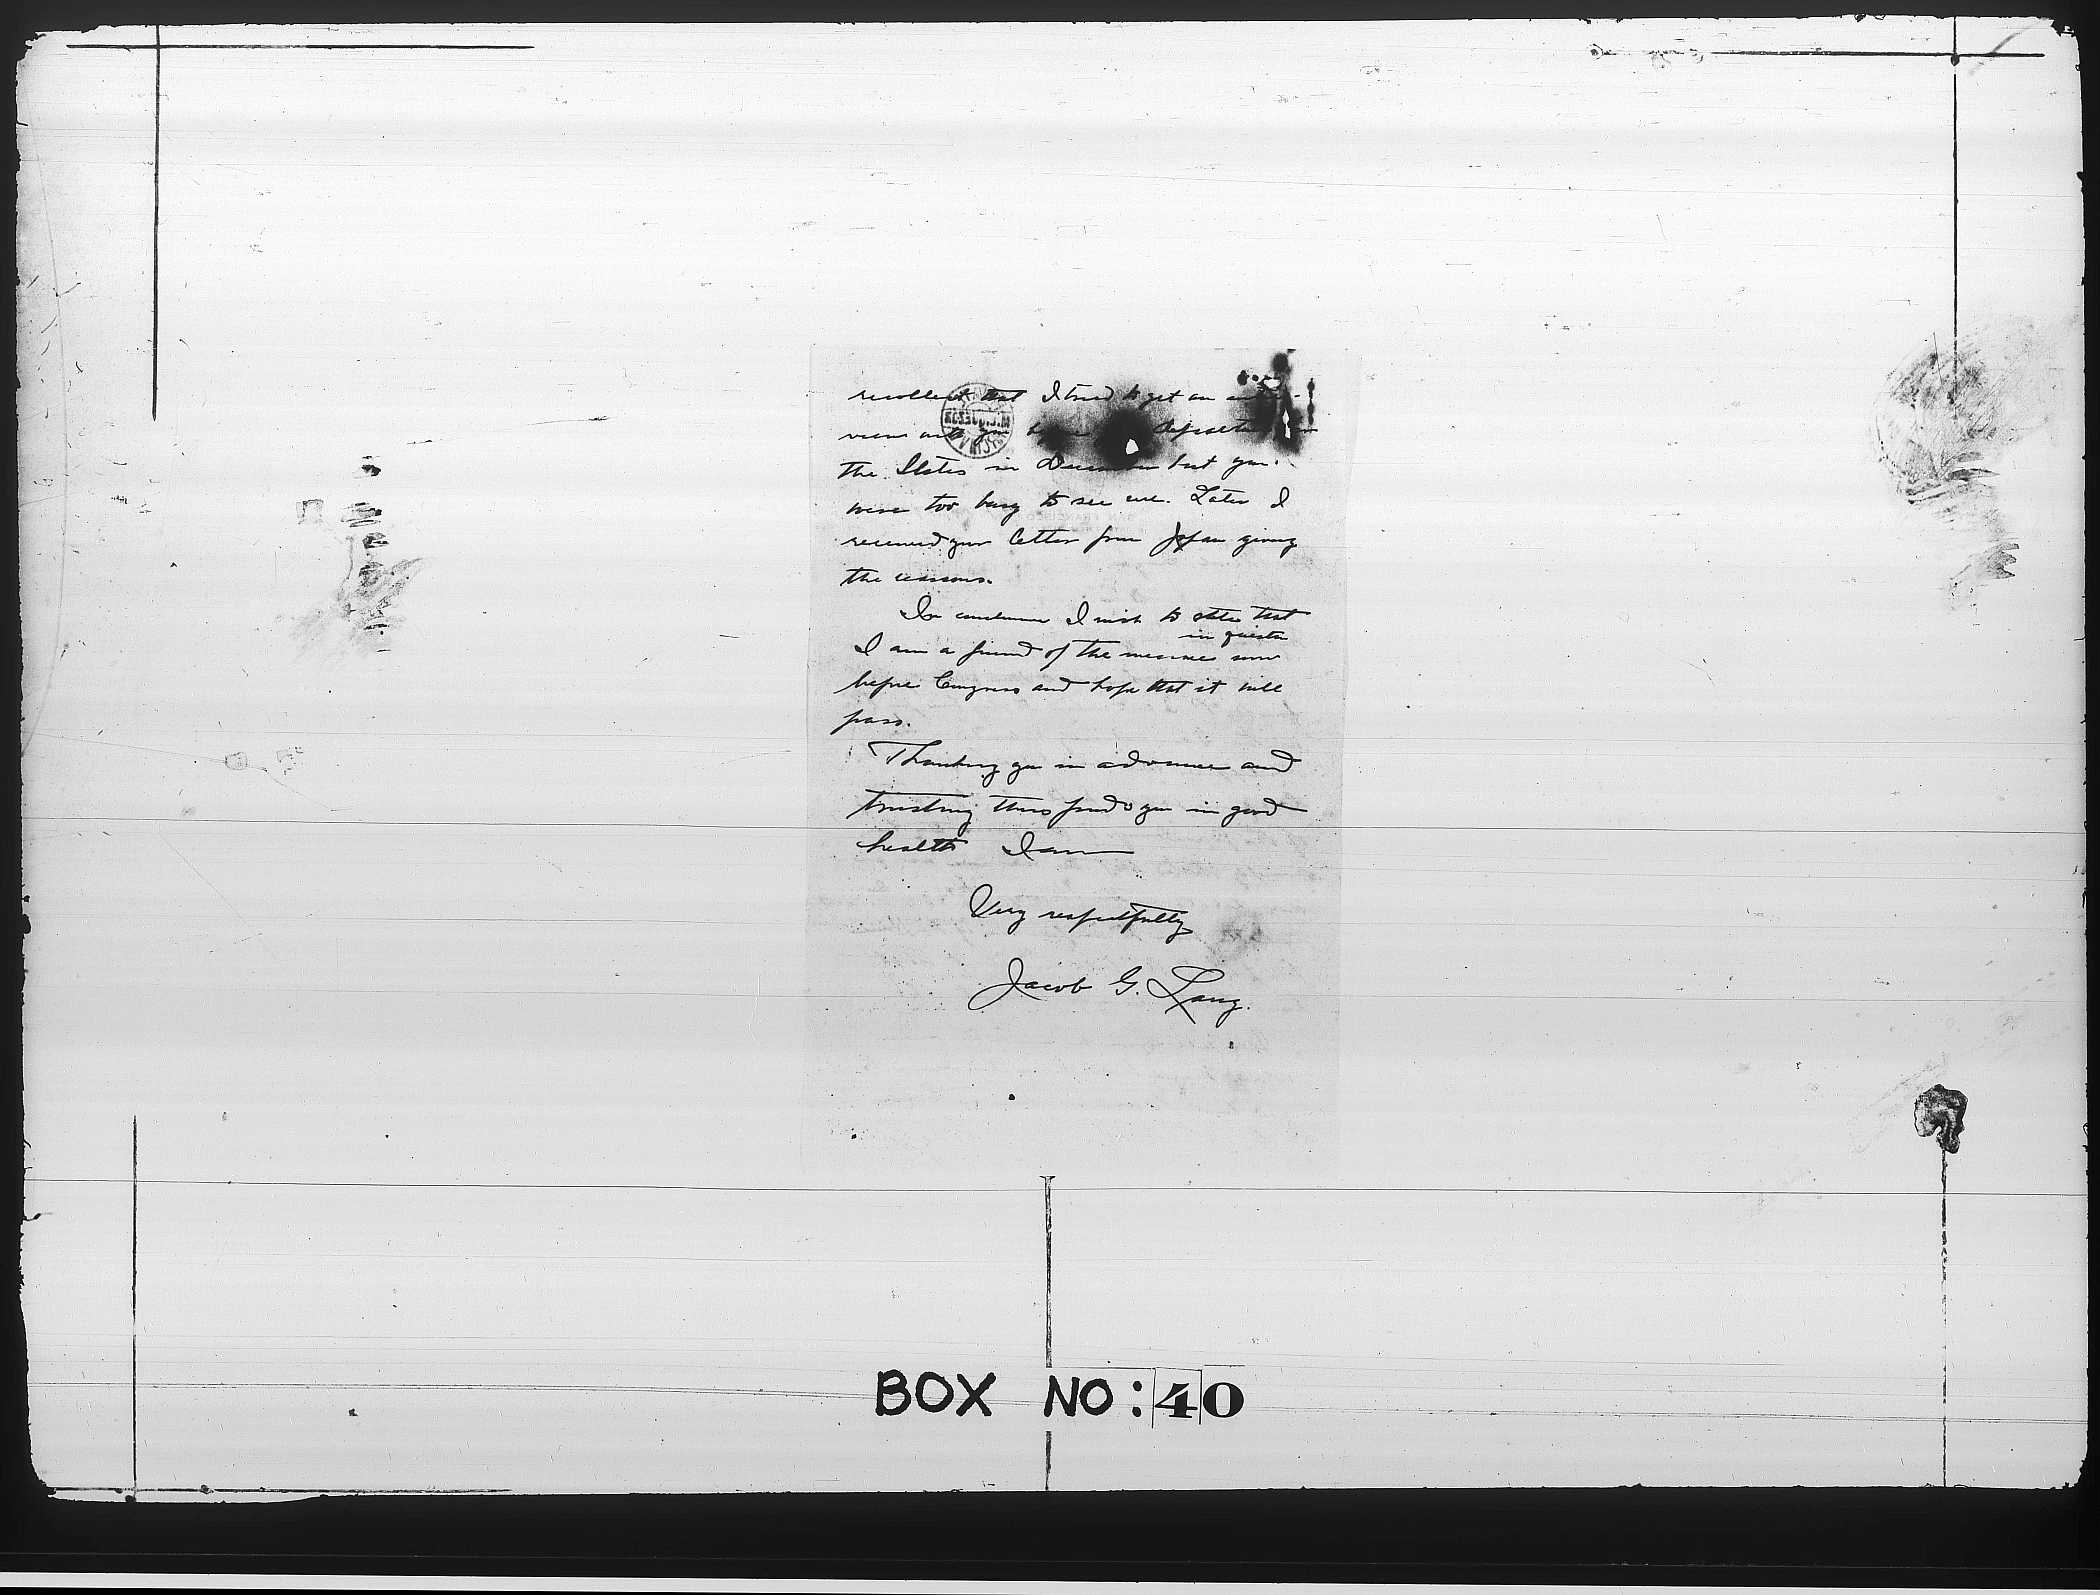 recollect that I tried to get an inter-
view with you before departure
the States in December but you
were too busy to see me. Later I
received your letter from Japan giving
the reasons.
In conclusion I wish to state that
in question
I am a friend of the measure now
before Congress and hope that it will
pass.
Thanking you in advance and
trusting this finds you in good
health I am
Very respectfully
Jacob G. Lang.
BOX NO: 40